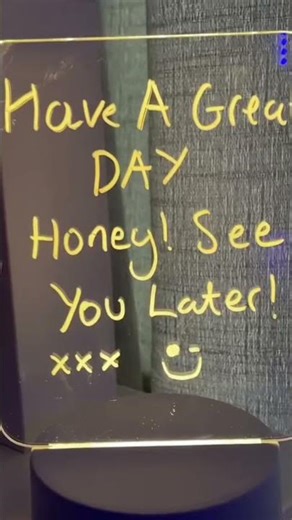 Have A Grea
DAY
Honey! See
You Later!
xxx